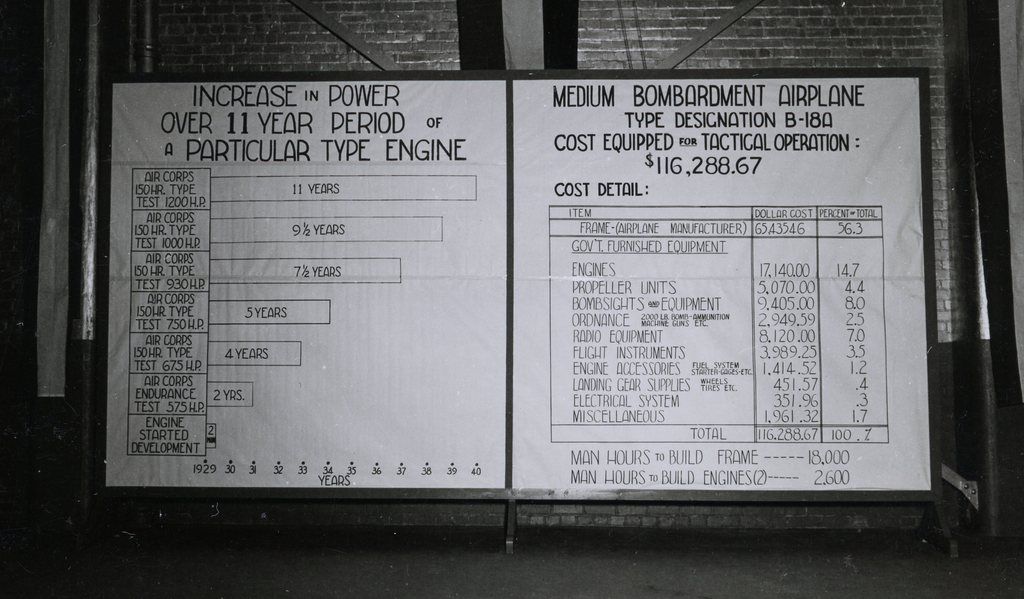 INCREASE IN POWER
OVER 11 YEAR PERIOD OF
A PARTICULAR TYPE ENGINE
AIR CORPS
150 HR. TYPE
TEST 1200 H.P.
11 YEARS
AIR CORPS
150 HR. TYPE
TEST 1000 H.P.
9½ YEARS
AIR CORPS
150 HR. TYPE
TEST 930 H.P.
7½ YEARS
AIR CORPS
150 HR. TYPE
TEST 750 H.P.
5 YEARS
AIR CORPS
150 HR. TYPE
TEST 675 H.P.
4 YEARS
AIR CORPS
ENDURANCE
TEST 575 H.P.
2 YRS.
ENGINE
STARTED
DEVELOPMENT
1929 30 31 32 33 34 35 36 37 38 39 40
YEARS
MEDIUM BOMBARDMENT AIRPLANE
TYPE DESIGNATION B-18A
COST EQUIPPED FOR TACTICAL OPERATION:
$116,288.67
COST DETAIL:
ITEM DOLLAR COST PERCENT OF TOTAL
FRAME-(AIRPLANE MANUFACTURER) 65,435.46 56.3
GOV'T. FURNISHED EQUIPMENT
ENGINES 17,140.00 14.7
PROPELLER UNITS 5,070.00 4.4
BOMBSIGHTS AND EQUIPMENT 9,405.00 8.0
ORDNANCE 2000 LB. BOMB-AMMUNITION MACHINE GUNS ETC. 2,949.59 2.5
RADIO EQUIPMENT 8,120.00 7.0
FLIGHT INSTRUMENTS 3,989.25 3.5
ENGINE ACCESSORIES FUEL SYSTEM STARTER-GAGES-ETC. 1,414.52 1.2
LANDING GEAR SUPPLIES WHEELS TIRES ETC. 451.57 .4
ELECTRICAL SYSTEM 351.96 .3
MISCELLANEOUS 1,961.32 1.7
TOTAL 116,288.67 100. %
MAN HOURS TO BUILD FRAME ----- 18,000
MAN HOURS TO BUILD ENGINES(2)----- 2,600